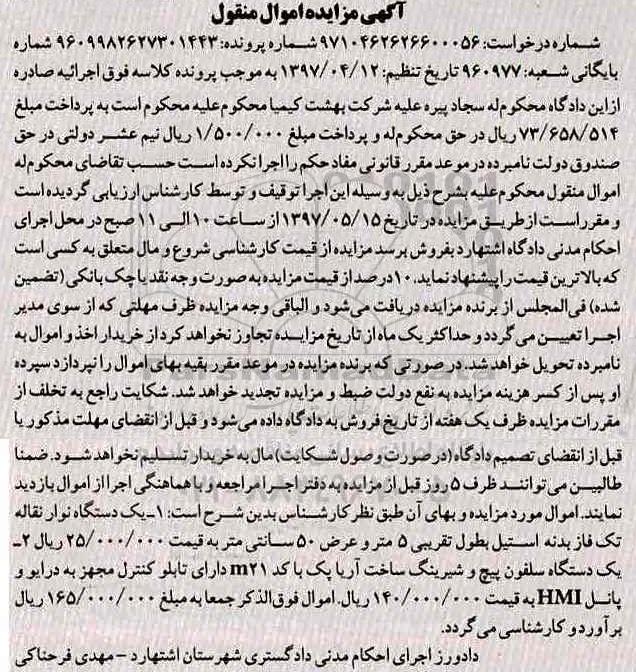 آگهی مزایده اموال منقول
شماره درخواست: ۹۷۱۰۴۶۲۶۲۶۶۰۰۰۵۶ شماره پرونده: ۹۶۰۹۹۸۲۶۲۷۳۰۱۴۴۳ شماره
بایگانی شعبه: ۹۶۰۹۷۷ تاریخ تنظیم: ۱۳۹۷/۰۴/۱۲ به موجب پرونده کلاسه فوق اجرائیه صادره
از این دادگاه محکوم‌له سجاد پیره علیه شرکت بهشت کیمیا محکوم‌علیه محکوم است به پرداخت مبلغ
۷۳/۶۵۸/۵۱۴ ریال در حق محکوم‌له و پرداخت مبلغ ۱/۵۰۰/۰۰۰ ریال نیم عشر دولتی در حق
صندوق دولت نامبرده در موعد مقرر قانونی مفاد حکم را اجرا نکرده است حسب تقاضای محکوم‌له
اموال منقول محکوم‌علیه بشرح ذیل به وسیله این اجرا توقیف و توسط کارشناس ارزیابی گردیده است
و مقرر است از طریق مزایده در تاریخ ۱۳۹۷/۰۵/۱۵ از ساعت ۱۰ الی ۱۱ صبح در محل اجرای
احکام مدنی دادگاه اشتهارد بفروش برسد مزایده از قیمت کارشناسی شروع و مال متعلق به کسی است
که بالاترین قیمت را پیشنهاد نماید. ۱۰ درصد از قیمت مزایده به صورت وجه نقد یا چک بانکی (تضمین
شده) فی‌المجلس از برنده مزایده دریافت می‌شود و الباقی وجه مزایده ظرف مهلتی که از سوی مدیر
اجرا تعیین می گردد و حداکثر یک ماه از تاریخ مزایده تجاوز نخواهد کرد از خریدار اخذ و اموال به
نامبرده تحویل خواهد شد. در صورتی که برنده مزایده در موعد مقرر بقیه بهای اموال را نپردازد سپرده
او پس از کسر هزینه مزایده به نفع دولت ضبط و مزایده تجدید خواهد شد. شکایت راجع به تخلف از
مقررات مزایده ظرف یک هفته از تاریخ فروش به دادگاه داده می‌شود و قبل از انقضای مهلت مذکور یا
قبل از انقضای تصمیم دادگاه (در صورت وصول شکایت) مال به خریدار تسلیم نخواهد شود. ضمنا
طالبین می‌توانند ظرف ۵ روز قبل از مزایده به دفتر اجرا مراجعه و با هماهنگی اجرا از اموال بازدید
نمایند. اموال مورد مزایده و بهای آن طبق نظر کارشناس بدین شرح است: ۱- یک دستگاه نوار نقاله
تک فاز بدنه استیل بطول تقریبی ۵ متر و عرض ۵۰ سانتی متر به قیمت ۲۵/۰۰۰/۰۰۰ ریال ۲-
یک دستگاه سلفون پیچ و شیرینگ ساخت آریا پک با کد m۲۱ دارای تابلو کنترل مجهز به درایو و
پانل HMI به قیمت ۱۴۰/۰۰۰/۰۰۰ ریال. اموال فوق‌الذکر جمعا به مبلغ ۱۶۵/۰۰۰/۰۰۰ ریال
برآورد و کارشناسی می گردد.
دادورز اجرای احکام مدنی دادگستری شهرستان اشتهارد - مهدی فرحناکی